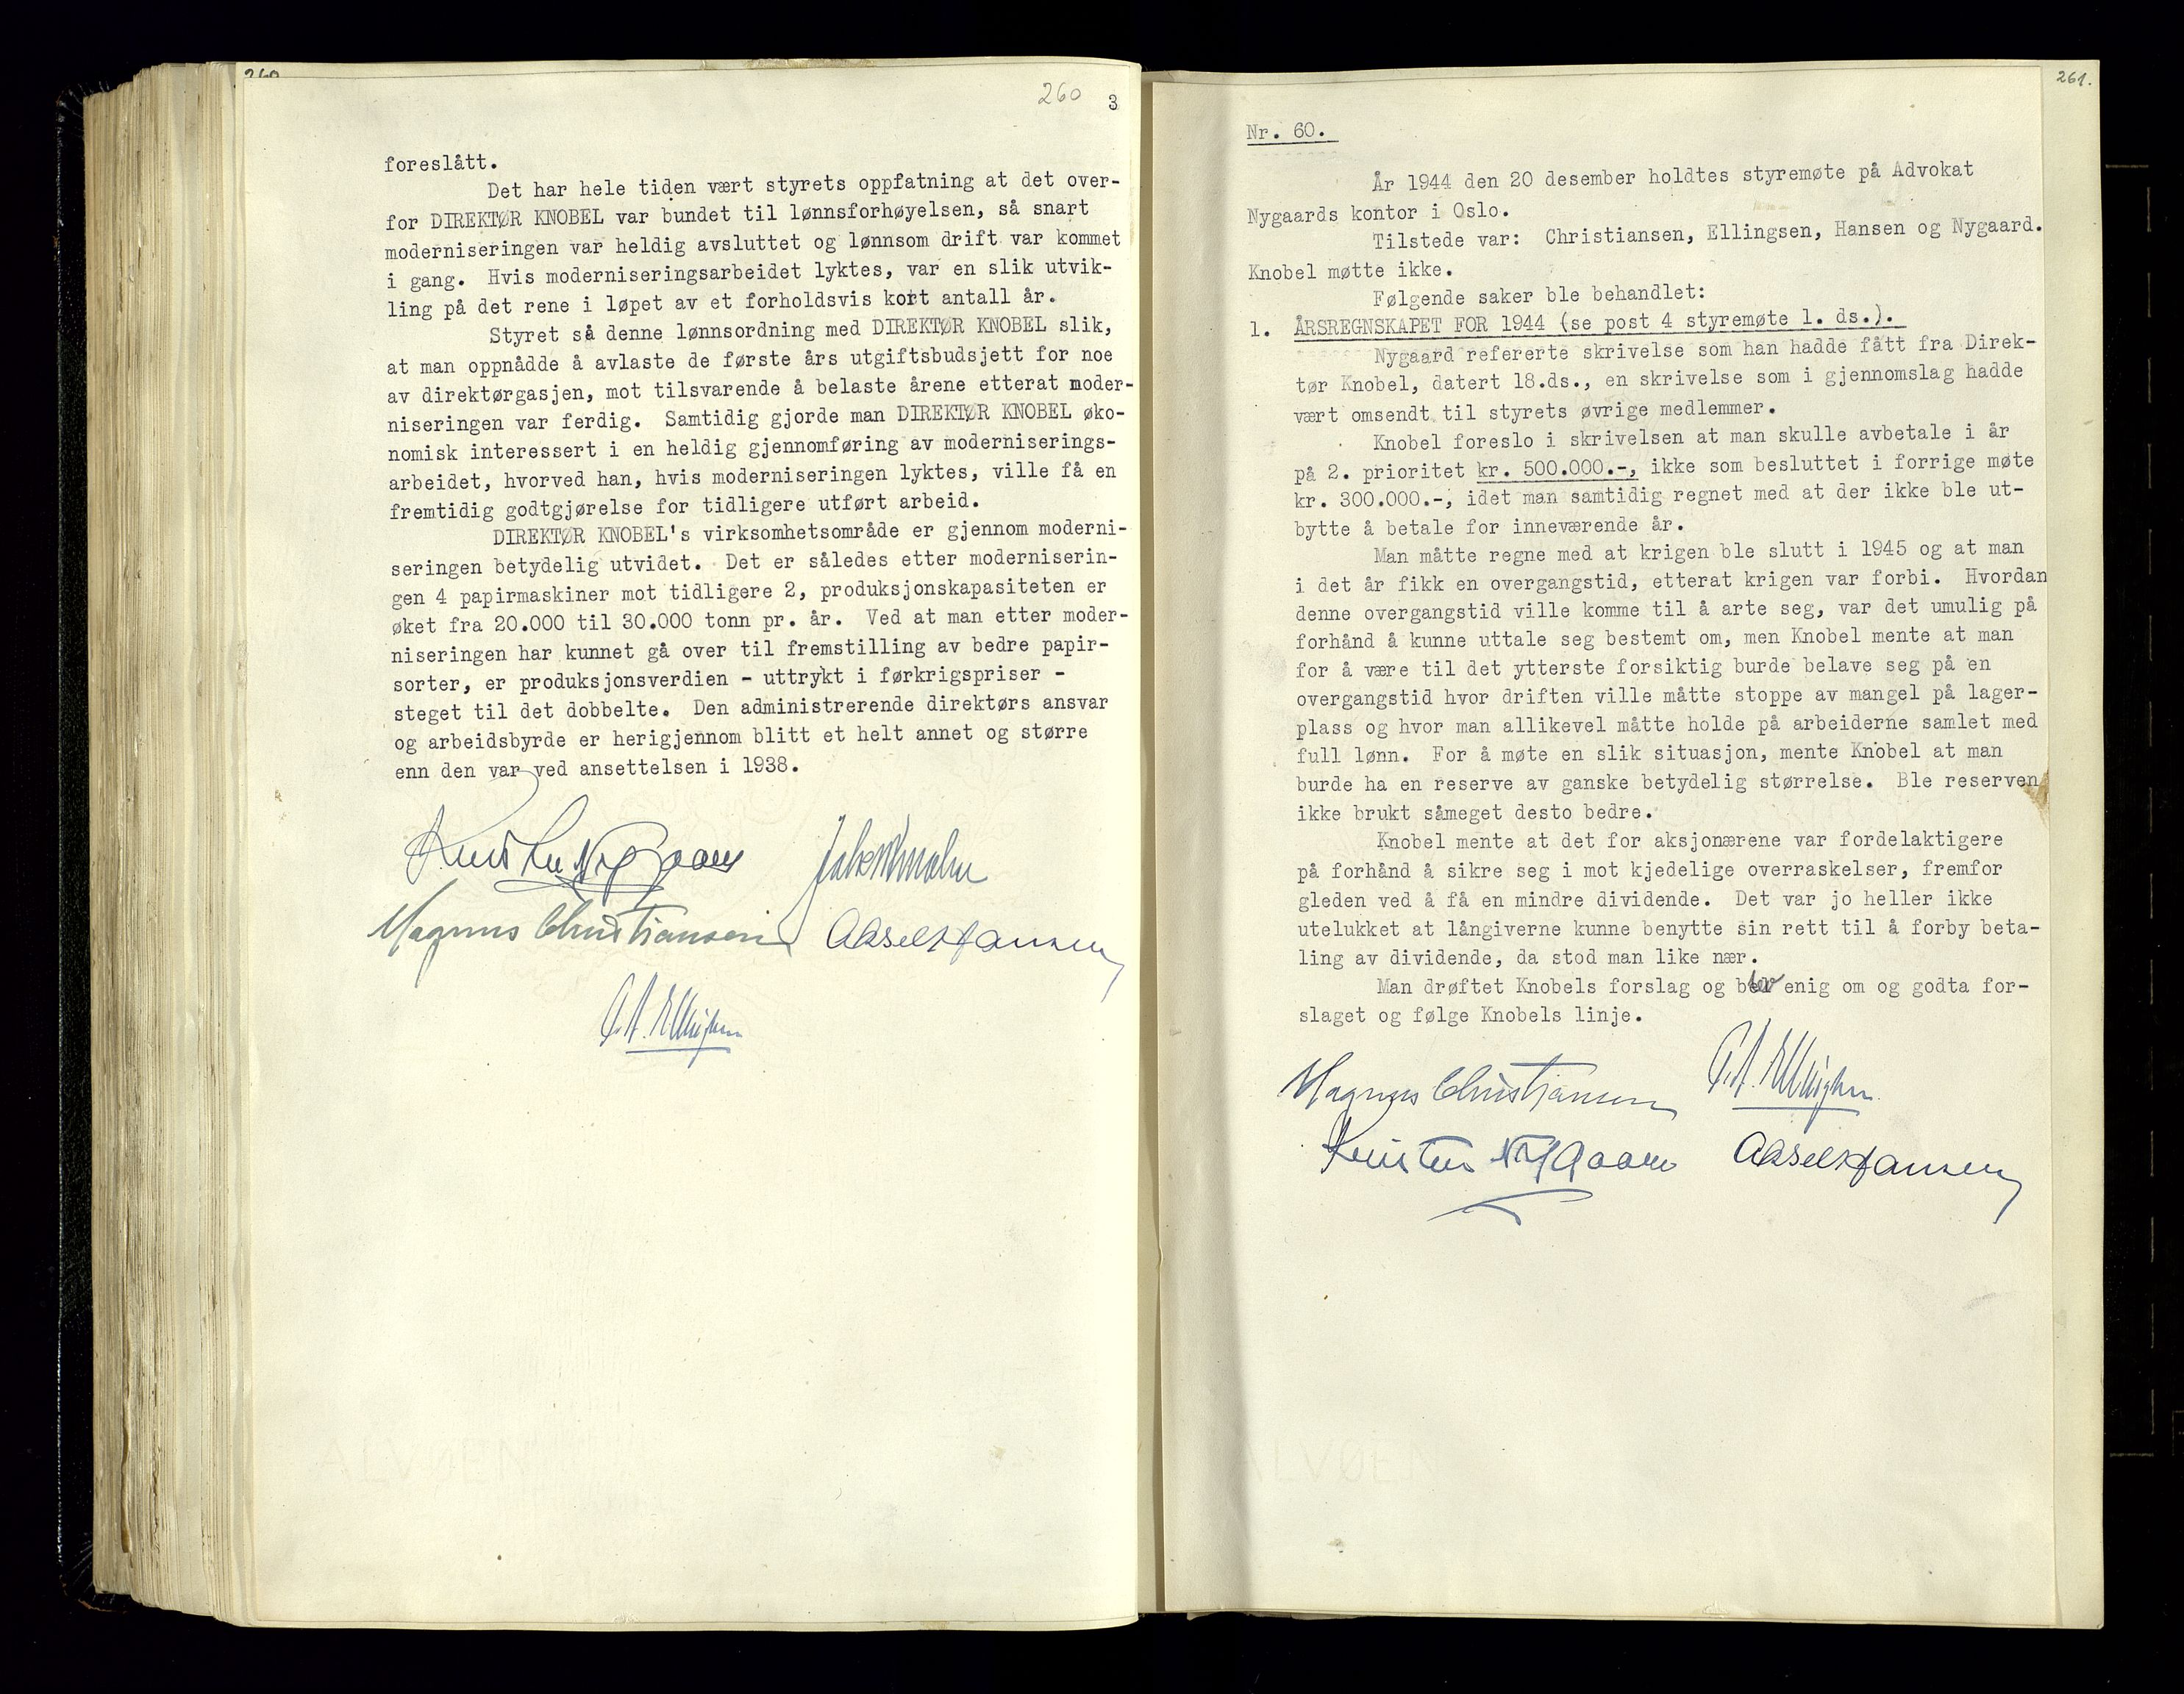 260
260 3
foreslått.
Det har hele tiden vært styrets oppfatning at det over-
for DIREKTØR KNOBEL var bundet til lønnsforhøyelsen, så snart
moderniseringen var heldig avsluttet og lønnsom drift var kommet
i gang. Hvis moderniseringsarbeidet lyktes, var en slik utvik-
ling på det rene i løpet av et forholdsvis kort antall år.
Styret så denne lønnsordning med DIREKTØR KNOBEL slik,
at man oppnådde å avlaste de første års utgiftsbudsjett for noe
av direktørgasjen, mot tilsvarende å belaste årene etterat moder-
niseringen var ferdig. Samtidig gjorde man DIREKTØR KNOBEL øko-
nomisk interessert i en heldig gjennomføring av moderniserings-
arbeidet, hvorved han, hvis moderniseringen lyktes, ville få en
fremtidig godtgjørelse for tidligere utført arbeid.
DIREKTØR KNOBEL's virksomhetsområde er gjennom moderni-
seringen betydelig utvidet. Det er således etter moderniserin-
gen 4 papirmaskiner mot tidligere 2, produksjonskapasiteten er
øket fra 20.000 til 30.000 tonn pr. år. Ved at man etter moder-
niseringen har kunnet gå over til fremstilling av bedre papir-
sorter, er produksjonsverdien - uttrykt i førkrigspriser -
steget til det dobbelte. Den administrerende direktørs ansvar
og arbeidsbyrde er herigjennom blitt et helt annet og større
enn den var ved ansettelsen i 1938.
Kristen Nygaard
Magnus Christiansen Aksel Hansen
ALVØEN
261.
Nr. 60.
År 1944 den 20 desember holdtes styremøte på Advokat
Nygaards kontor i Oslo.
Tilstede var: Christiansen, Ellingsen, Hansen og Nygaard.
Knobel møtte ikke.
Følgende saker ble behandlet:
1. ÅRSREGNSKAPET FOR 1944 (se post 4 styremøte 1. ds.).
Nygaard refererte skrivelse som han hadde fått fra Direk-
tør Knobel, datert 18.ds., en skrivelse som i gjennomslag hadde
vært omsendt til styrets øvrige medlemmer.
Knobel foreslo i skrivelsen at man skulle avbetale i år
på 2. prioritet kr. 500.000.-, ikke som besluttet i forrige møte
kr. 300.000.-, idet man samtidig regnet med at der ikke ble ut-
bytte å betale for inneværende år.
Man måtte regne med at krigen ble slutt i 1945 og at man
i det år fikk en overgangstid, etterat krigen var forbi. Hvordan
denne overgangstid ville komme til å arte seg, var det umulig på
forhånd å kunne uttale seg bestemt om, men Knobel mente at man
for å være til det ytterste forsiktig burde belave seg på en
overgangstid hvor driften ville måtte stoppe av mangel på lager-
plass og hvor man allikevel måtte holde på arbeiderne samlet med
full lønn. For å møte en slik situasjon, mente Knobel at man
burde ha en reserve av ganske betydelig størrelse. Ble reserven
ikke brukt såmeget desto bedre.
Knobel mente at det for aksjonærene var fordelaktigere
på forhånd å sikre seg i mot kjedelige overraskelser, fremfor
gleden ved å få en mindre dividende. Det var jo heller ikke
utelukket at långiverne kunne benytte sin rett til å forby beta-
ling av dividende, da stod man like nær.
Man drøftet Knobels forslag og blev enig om og godta for-
slaget og følge Knobels linje.
Magnus Christiansen
Kristen Nygaard Aksel Hansen
ALVØEN